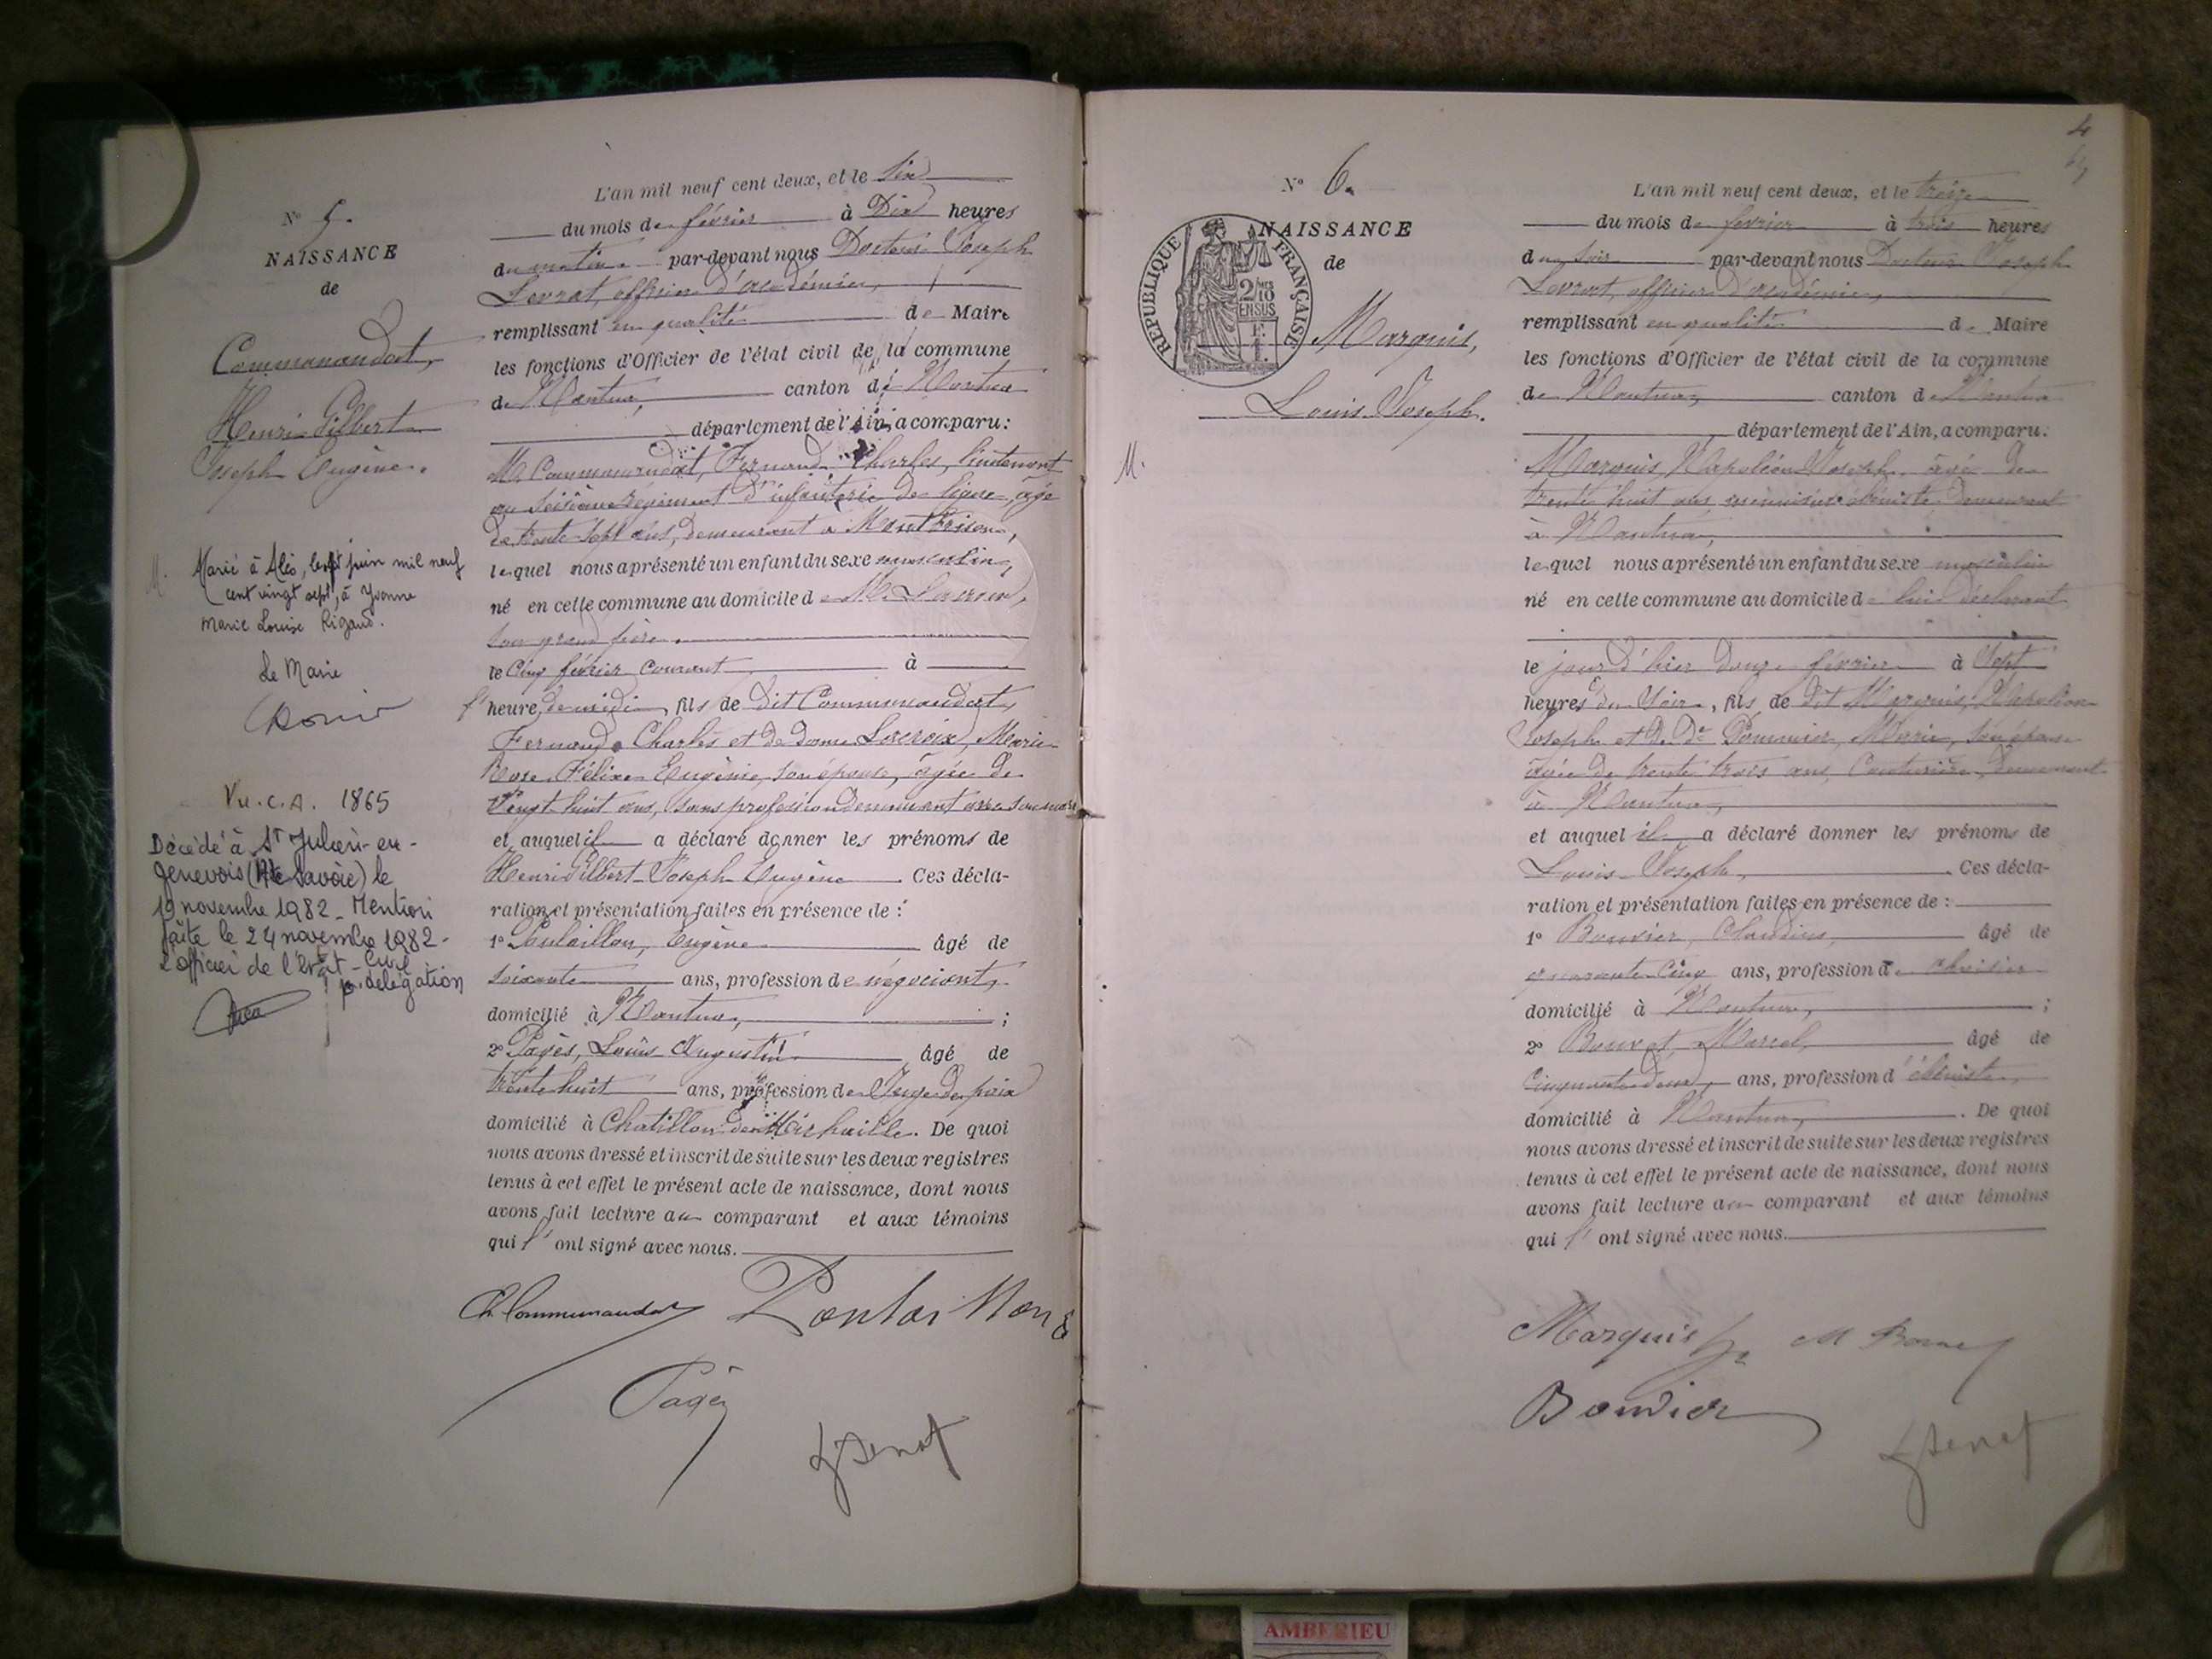 N° 5.
NAISSANCE
de
Commanaudat,
Henri Gilbert
Joseph Eugène.
M.
Marié à Alès, le sept juin mil neuf
cent vingt sept, à Yvonne
Marie Louise Rigaud.
Le Maire
Vu. C.A. 1865
Décédé à St Julien-en-
Genevois (Hte Savoie) le
19 novembre 1982 - Mention
faite le 24 novembre 1982 -
L'officier de l'Etat-Civil
p. délégation
L'an mil neuf cent deux, et le six
du mois de février à Dix heures
du matin par-devant nous Docteur Joseph
Levrat, officier d'académie,
remplissant en qualité de Maire
les fonctions d'Officier de l'état civil de la commune
de Nantua, canton de Nantua
département de l'Ain, a comparu:
Mr. Communaudat, Fernand Charles, lieutenant
au seizième régiment d'infanterie de ligne, âgé
de trente sept ans, demeurant à Montbrison,
lequel nous a présenté un enfant du sexe masculin,
né en cette commune au domicile de Mr. Lacroix,
son grand père.
le cinq février courant à
l'heure de midi, fils de dit Communaudat,
Fernand Charles et de dame Lacroix, Marie
Rose Félixe Eugénie, son épouse, âgée de
Vingt huit ans, sans profession demeurant avec son mari
et auquel il a déclaré donner les prénoms de
Henri Gilbert Joseph Eugène Ces décla-
ration et présentation faites en présence de :
1° Poulaillon, Eugène âgé de
soixante ans, profession de négociant,
domicilié à Nantua, ;
2° Pagès, Louis Augustin âgé de
trente huit ans, profession de Juge de paix
domicilié à Chatillon de Michaille. De quoi
nous avons dressé et inscrit de suite sur les deux registres
tenus à cet effet le présent acte de naissance, dont nous
avons fait lecture au comparant et aux témoins
qui l' ont signé avec nous.
Ch. Communaudat
Pagès
4
N° 6.
NAISSANCE
de
RÉPUBLIQUE FRANÇAISE
2/10 MES
EN SUS
Marquis,
Louis Joseph.
M.
L'an mil neuf cent deux, et le treize
du mois de février à trois heures
du soir par-devant nous Docteur Joseph
Levrat, officier d'académie,
remplissant en qualité de Maire
les fonctions d'Officier de l'état civil de la commune
de Nantua, canton de Nantua
département de l'Ain, a comparu:
Marquis, Napoléon Joseph, âgé de
trente huit ans, menuisier ébéniste, demeurant
à Nantua,
lequel nous a présenté un enfant du sexe masculin
né en cette commune au domicile de lui déclarant
le jour d'hier douze février à Sept
heures du soir, fils de dit Marquis, Napoléon
Joseph et de De Pommier, Marie, son épouse
âgée de trente trois ans, Couturière, demeurant
à Nantua,
et auquel il a déclaré donner les prénoms de
Louis Joseph, . Ces décla-
ration et présentation faites en présence de :
1° Bouvier, Claudius, âgé de
quarante cinq ans, profession de
domicilié à Nantua, ;
2° Bouvet, Marcel, âgé de
Cinquante deux, ans, profession d'ébéniste,
domicilié à Nantua, . De quoi
nous avons dressé et inscrit de suite sur les deux registres
tenus à cet effet le présent acte de naissance, dont nous
avons fait lecture au comparant et aux témoins
qui l' ont signé avec nous.
Marquis
Bouvier
AMBERIEU